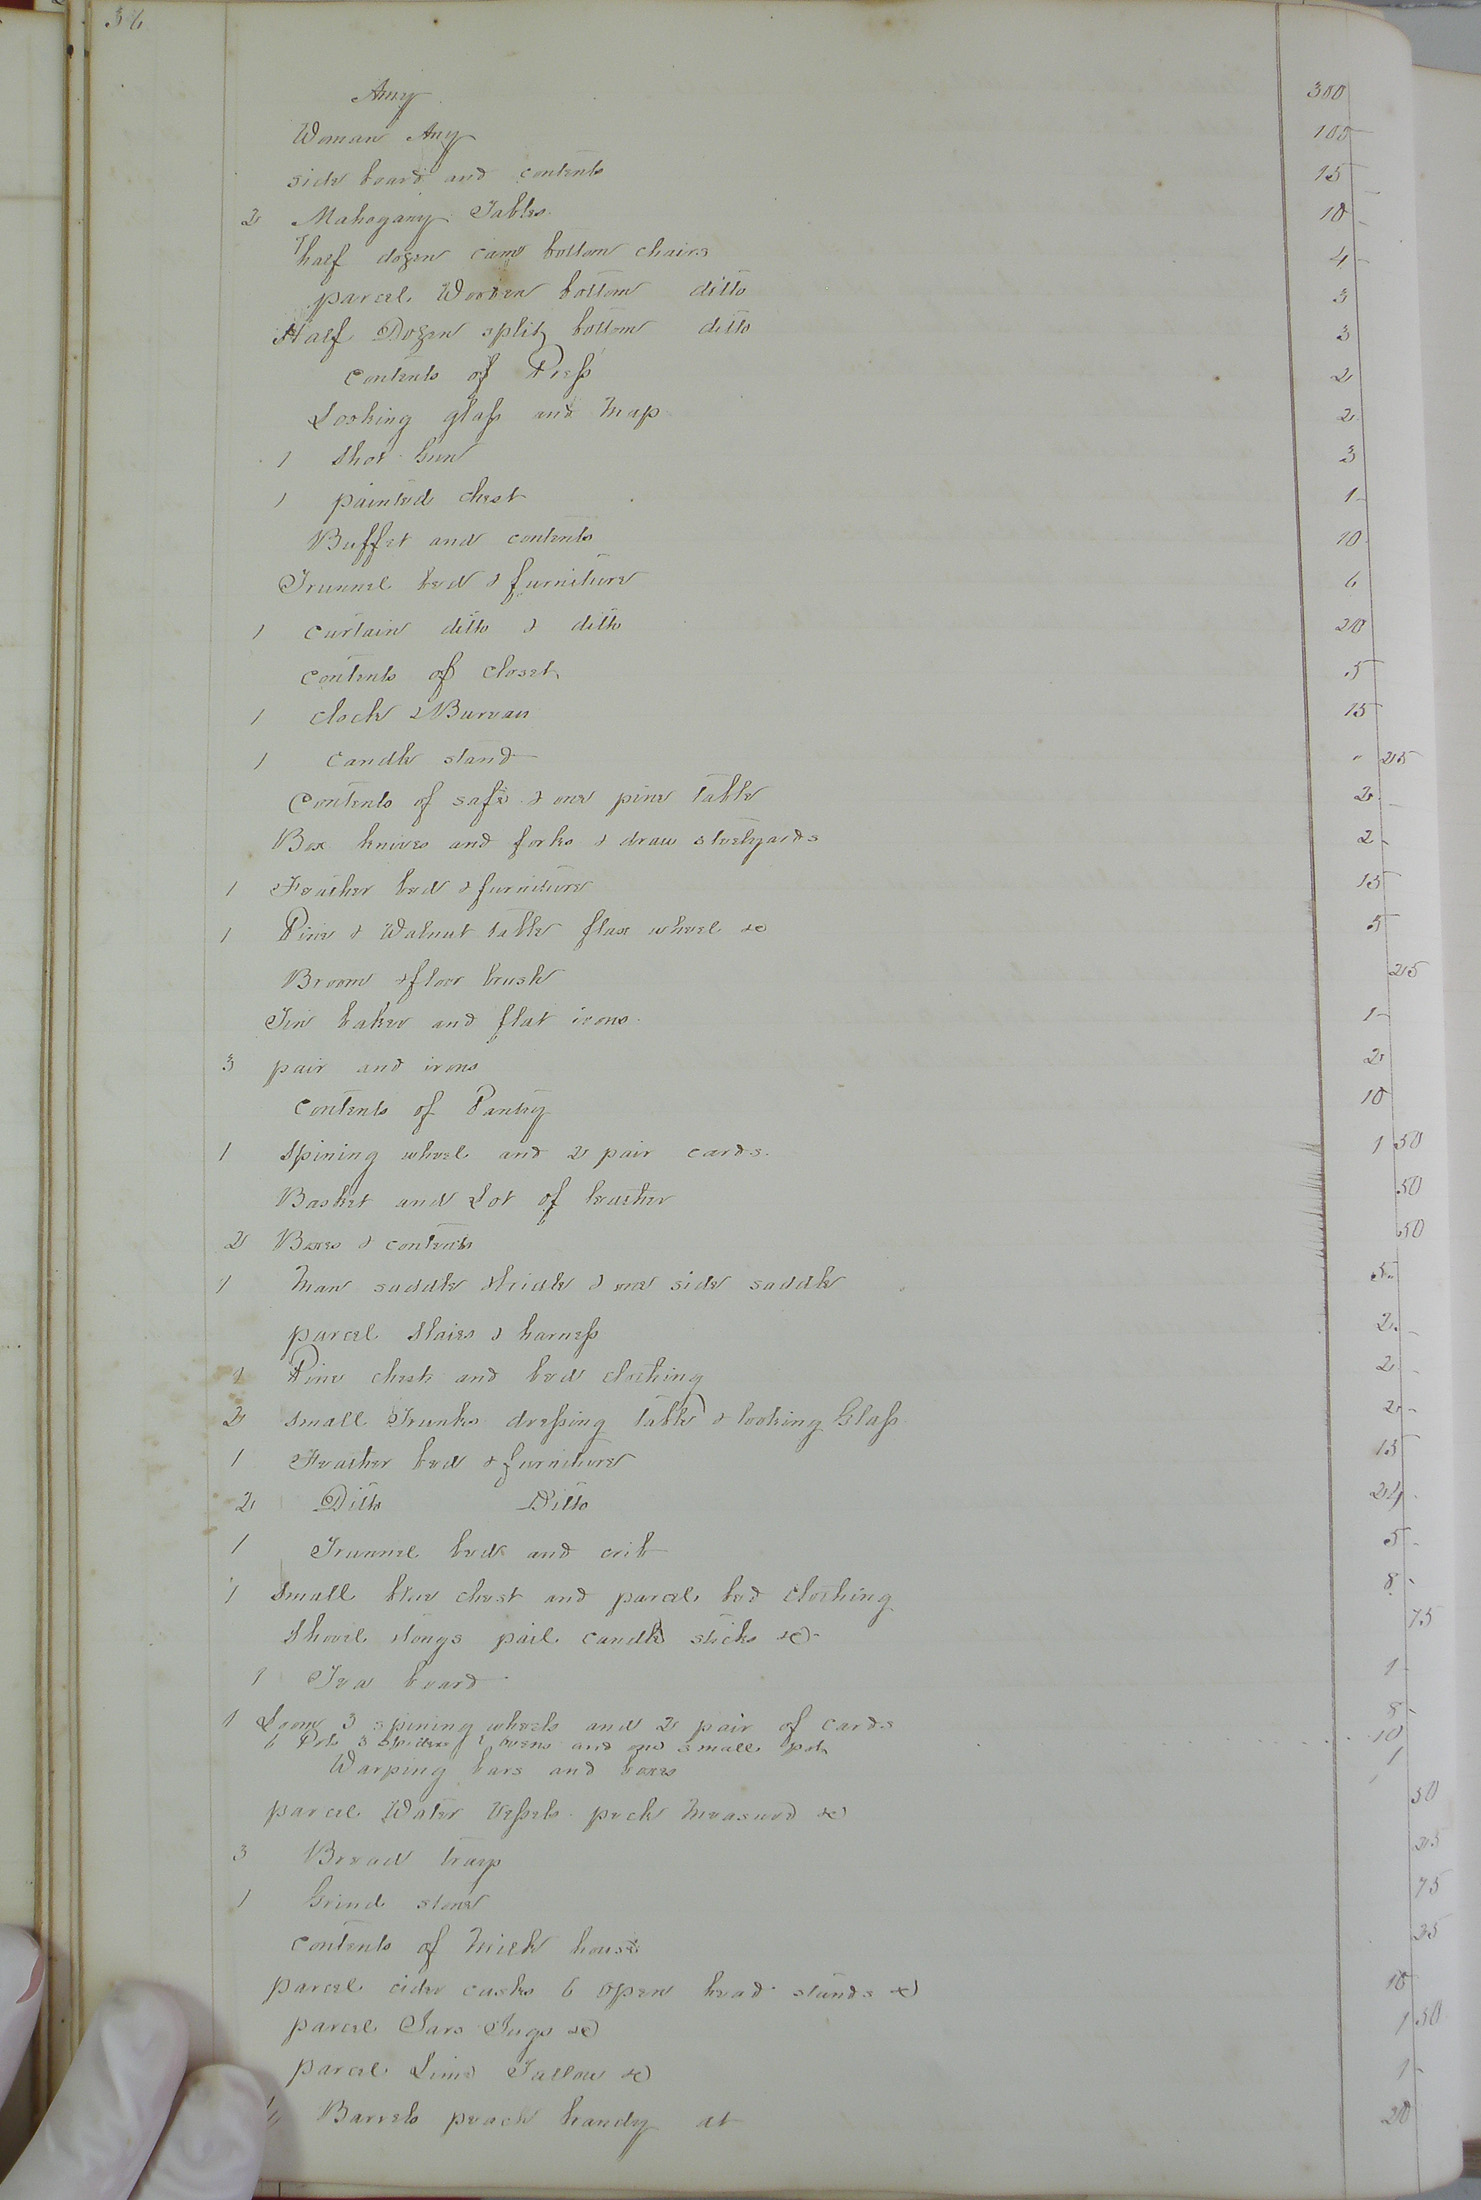 36
Amy 300
Woman Amy 100
side board and contents 15
2 Mahogany Tables 10
half dozen cane bottom chairs 4
parcel Wooden bottom ditto 3
Half Dozen split bottom ditto 3
contents of Press 2
Looking glass and Map 2
1 Shot Gun 3
1 painted chest 1
Buffet and contents 10
Trunnel bed & furniture 6
1 curtain ditto & ditto 20
contents of closet 5
1 clock & Bureau 15
1 candle stand " 25
Contents of safe & one pine table 2
Box knives and forks & draw steelyards 2
1 Feather bed & furniture 15
1 Pine & Walnut table flax wheel &c 5
Broom & floor brush 25
Tin baker and flat irons 1
3 pair and irons 2
contents of Pantry 10
1 Spining wheel and 2 pair cards 1 50
Basket and Lot of leather 50
2 Boxes & contents 50
1 Man saddle & bridle & one side saddle 5
parcel Slaies & harness 2
1 Pine chest and bed clothing 2
2 Small Trunks dressing table & looking Glass 2
1 Feather bed & furniture 15
2 Ditto Ditto 24
1 Trunnel bed and crib 5
1 Small blue chest and parcel bed clothing 8
Shovel & tongs pail candle sticks &c 75
1 Tea board 1
1 Loom 3 spining wheels and 2 pair of cards 8
6 Pots 3 spiders 2 ovens and one small pot 10
Warping bars and boxes 1
parcel Water Vessels peck Measured &c 50
3 Bread trays 25
1 Grind stone 75
contents of Milk house 25
parcel cider casks 6 open head stands &c 10
parcel Jars Jugs &c 1 50
parcel Lime Tallow &c 1
Barrels peach handy at 20